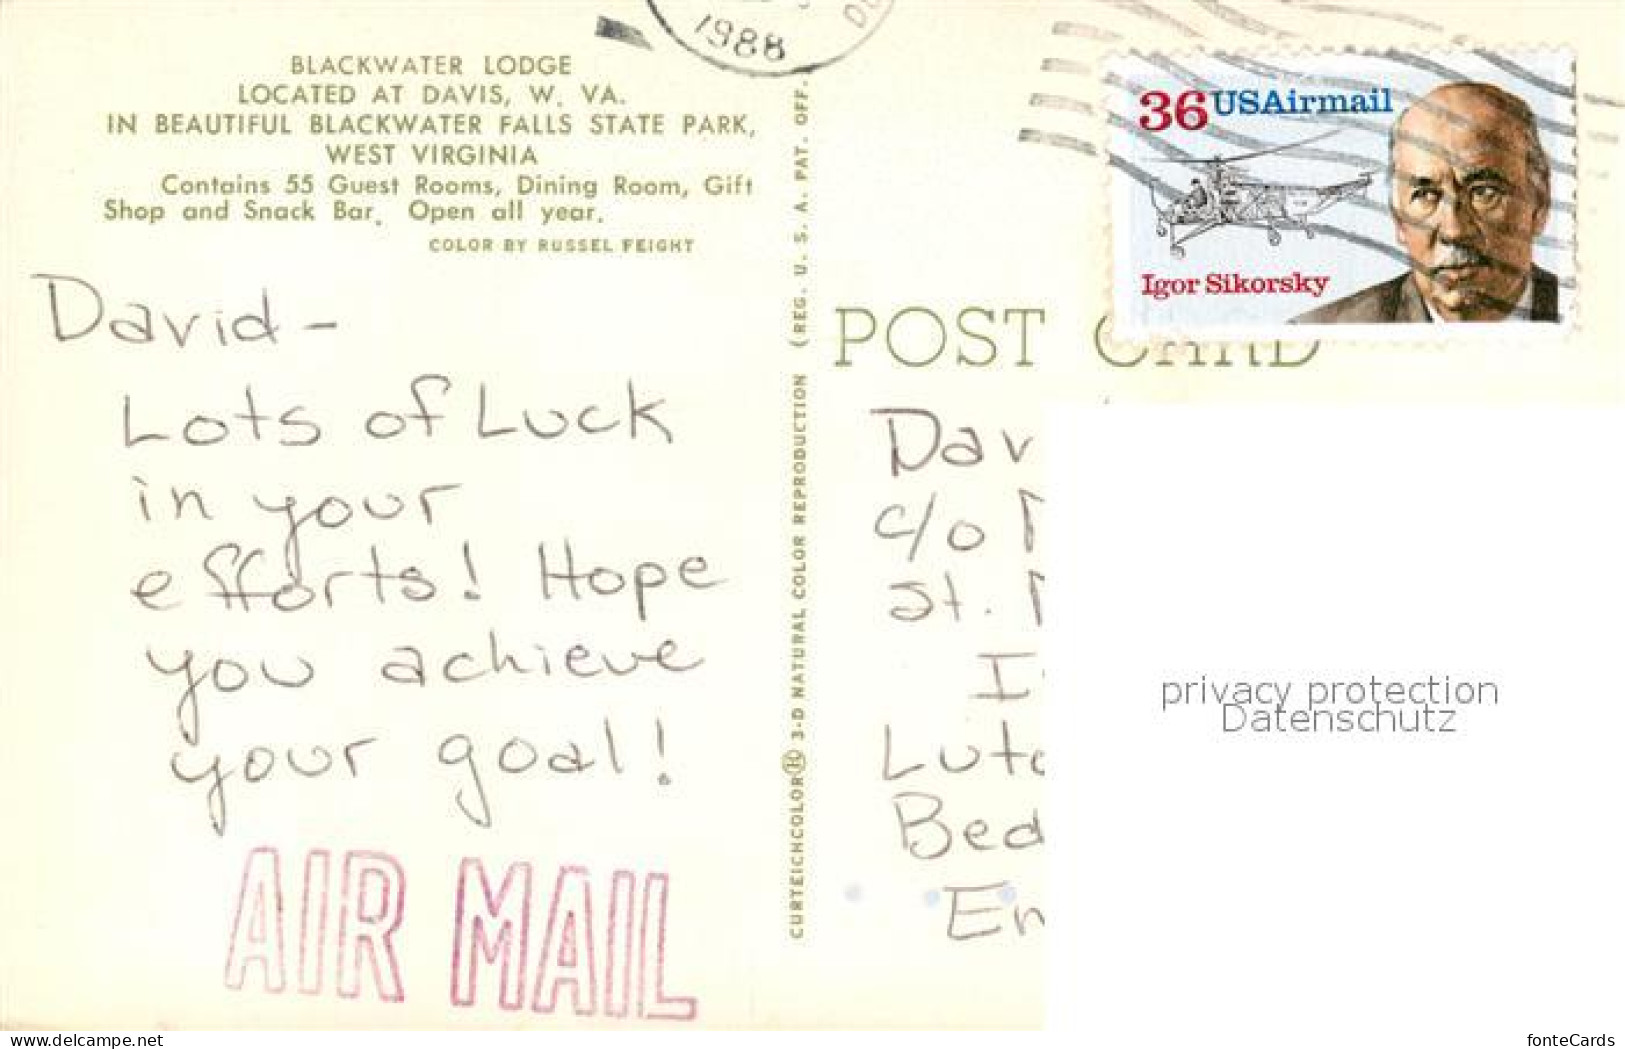 1988
BLACKWATER LODGE
LOCATED AT DAVIS, W. VA.
IN BEAUTIFUL BLACKWATER FALLS STATE PARK,
WEST VIRGINIA
Contains 55 Guest Rooms, Dining Room, Gift
Shop and Snack Bar. Open all year.
COLOR BY RUSSEL FEIGHT
David-
Lots of Luck
in your
efforts! Hope
you achieve
your goal!
AIR MAIL
CURTEICHCOLOR® 3-D NATURAL COLOR REPRODUCTION (REG. U. S. A. PAT. OFF.
36 USAirmail
Igor Sikorsky
POST CARD
Dav
c/o
St.
Luto
Bed
En
privacy protection
Datenschutz
www.delcampe.net
fonteCards